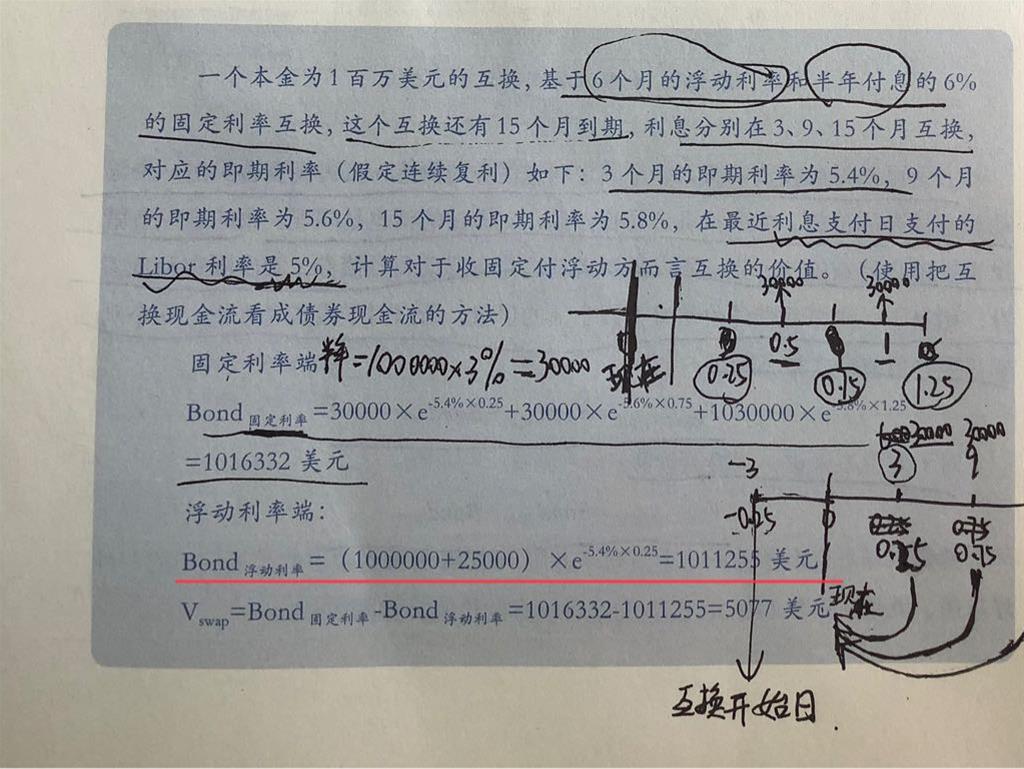 一个本金为1百万美元的互换，基于6个月的浮动利率和半年付息的6%
的固定利率互换，这个互换还有15个月到期，利息分别在3、9、15个月互换，
对应的即期利率（假定连续复利）如下：3个月的即期利率为5.4%，9个月
的即期利率为5.6%，15个月的即期利率为5.8%，在最近利息支付日支付的
Libor利率是5%，计算对于收固定付浮动方而言互换的价值。（使用把互
换现金流看成债券现金流的方法）
30000 30000
固定利率端
半年=1000000×3%=30000
现在
0.25 0.5 0.75 1 1.25
Bond固定利率=30000×e-5.4%×0.25+30000×e-5.6%×0.75+1030000×e-5.8%×1.25
=1016332 美元
30000 30000
-3 3 9
浮动利率端：
-0.25 0 0.25 0.75
Bond浮动利率=（1000000+25000）×e-5.4%×0.25=1011255 美元
Vswap=Bond固定利率-Bond浮动利率=1016332-1011255=5077 美元
现在
互换开始日